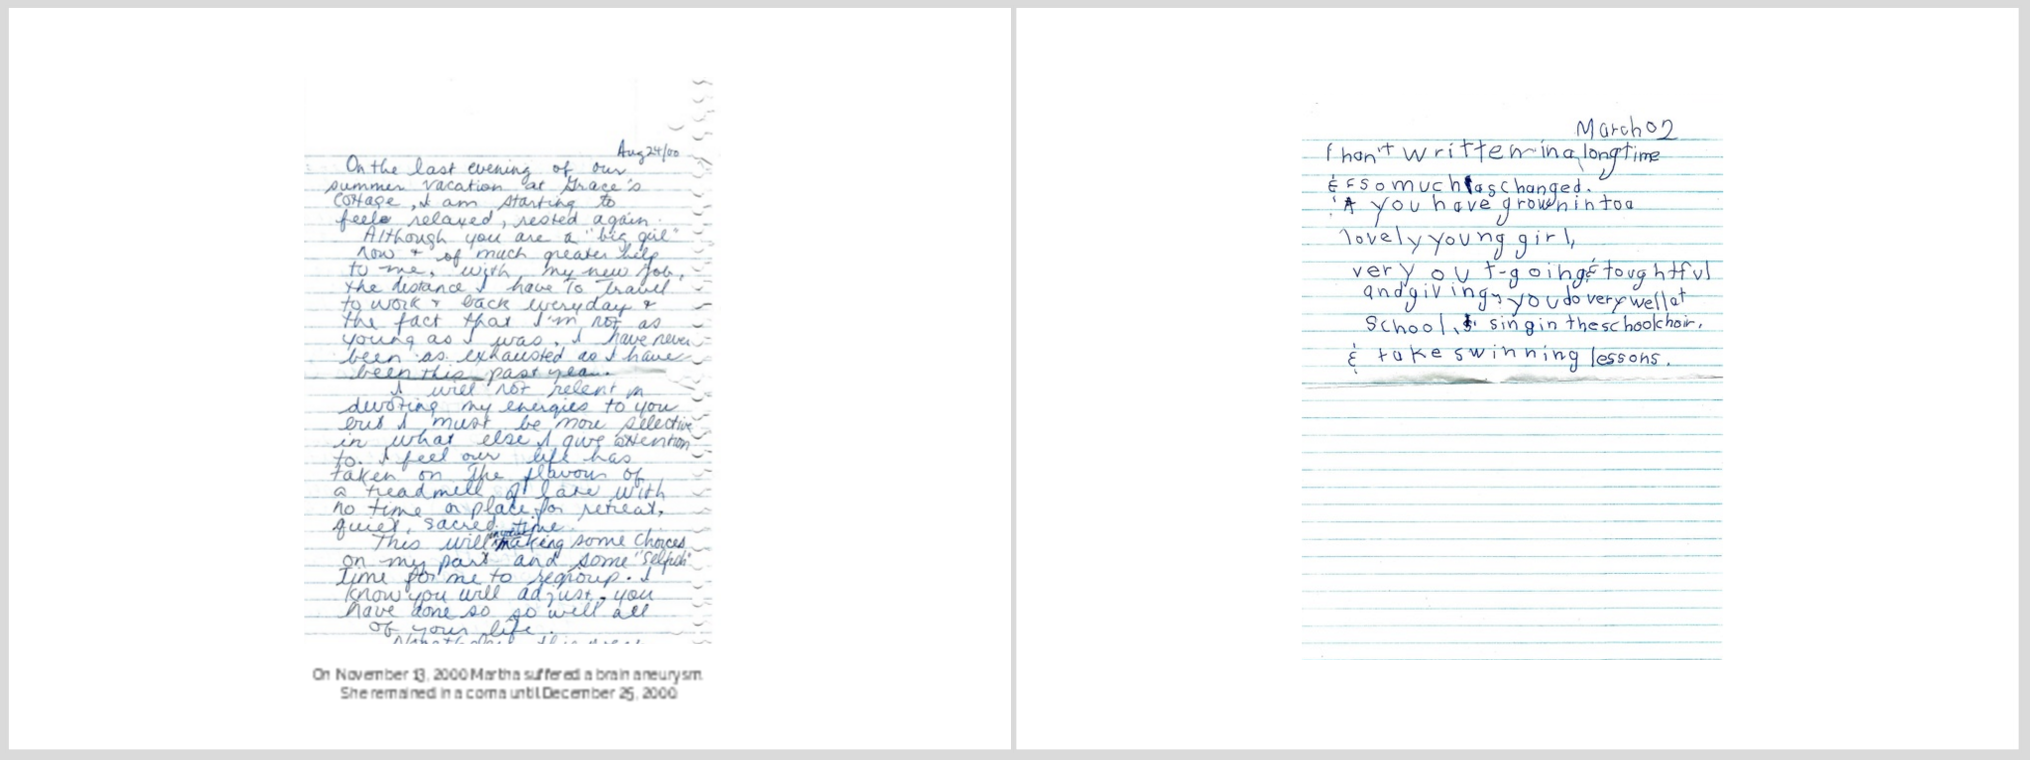 Aug 24/00
On the last evening of our
summer vacation at Grace's
cottage, I am starting to
feele relaxed, rested again.
Although you are a "big girl"
now & of much greater help
to me, with my new job,
the distance I have to travel
to work & back everyday &
the fact that I'm not as
young as I was, I have never
been as exhausted as I have
been this past year.
I will not relent in
devoting my energies to you
but I must be more selective
in what else I give attention
to. I feel our life has
taken on the flavour of
a treadmill of late with
no time or place for retreat,
quiet, sacred time.
This will making some choices
on my part and some "selfish"
time for me to regroup. I
know you will adjust, you
have done so so well all
of your life.
On November 13, 2000 Martha suffered a brain aneurysm
She remained in a coma until December 25, 2000
March 02
I han't written in a long time
& so much has changed.
you have grown in too
lovely young girl,
very out-going & toughtful
and giving, you do very well at
school, sing in the school choir,
& take swinning lessons.